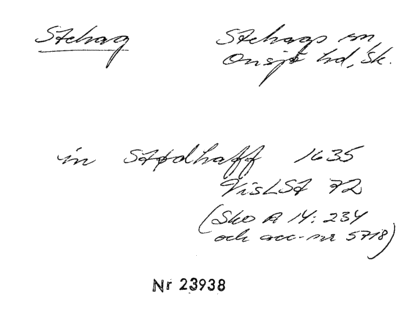 Stehag Stehags sn
Onsjö hd, Sk.
in Stødhaff 1635
VisLSt 72
(Sko A 14: 234
och acc-nr 5718)
Nr 23938